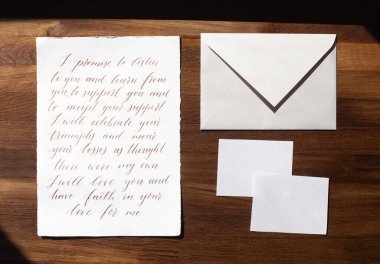 I promise to listen
to you and learn from
you to support you and
to accept your support
I will celebrate your
triumphs and mour
your losses as thought
there were my own
I will love you and
have faith in your
love for me